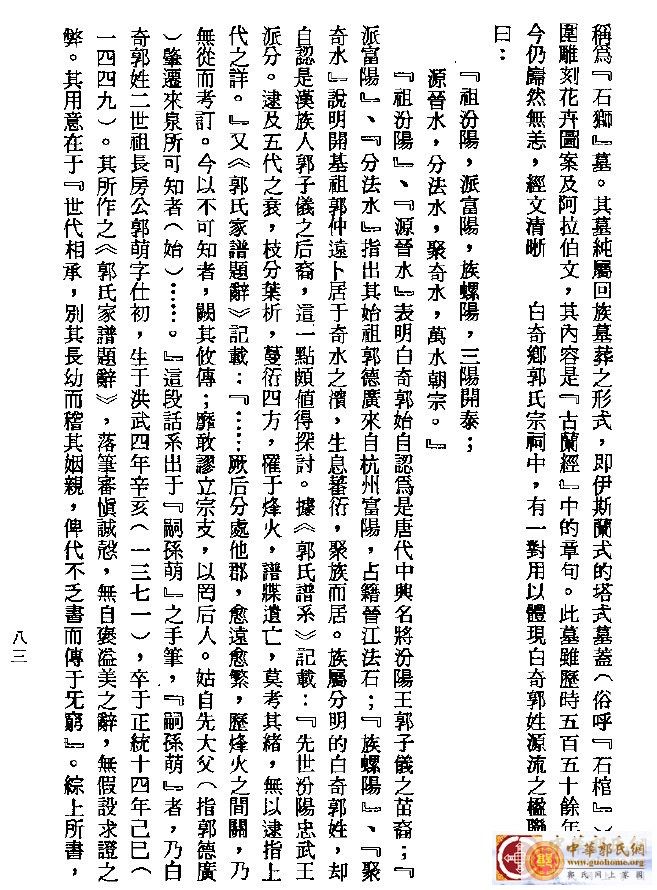 稱爲『石獅』墓。其墓純屬回族墓葬之形式，即伊斯蘭式的塔式墓蓋（俗呼『石棺』）
圍雕刻花卉圖案及阿拉伯文，其內容是『古蘭經』中的章句。此墓雖歷時五百五十餘年
今仍巋然無恙，經文清晰　白奇鄉郭氏宗祠中，有一對用以體現白奇郭姓源流之楹聯
曰：
『祖汾陽，派富陽，族螺陽，三陽開泰；
源晉水，分法水，聚奇水，萬水朝宗。』
『祖汾陽』、『源晉水』表明白奇郭始自認爲是唐代中興名將汾陽王郭子儀之苗裔；『
派富陽』、『分法水』指出其始祖郭德廣來自杭州富陽，占籍晉江法石；『族螺陽』、『聚
奇水』說明開基祖郭仲遠卜居于奇水之濱，生息蕃衍，聚族而居。族屬分明的白奇郭姓，却
自認是漢族人郭子儀之后裔，這一點頗值得探討。據《郭氏譜系》記載：『先世汾陽忠武王
派分。逮及五代之衰，枝分葉析，蔓衍四方，罹于烽火，譜牒遺亡，莫考其緒，無以逮指上
代之詳。』又《郭氏家譜題辭》記載：『……厥后分處他郡，愈遠愈繁，歷烽火之間關，乃
無從而考訂。今以不可知者，闕其攸傳；靡敢謬立宗支，以罔后人。姑自先大父（指郭德廣
）肇遷來泉所可知者（始）……。』這段話系出于『嗣孫萌』之手筆，『嗣孫萌』者，乃白
奇郭姓二世祖長房公郭萌字仕初，生于洪武四年辛亥（一三七一），卒于正統十四年己巳（
一四四九）。其所作之《郭氏家譜題辭》，落筆審慎誠慤，無自褒溢美之辭，無假設求證之
弊。其用意在于『世代相承，別其長幼而稽其姻親，俾代不乏書而傳于旡窮』。綜上所書，
八三
中華郭氏網
www.guohome.org
郭氏网上家園